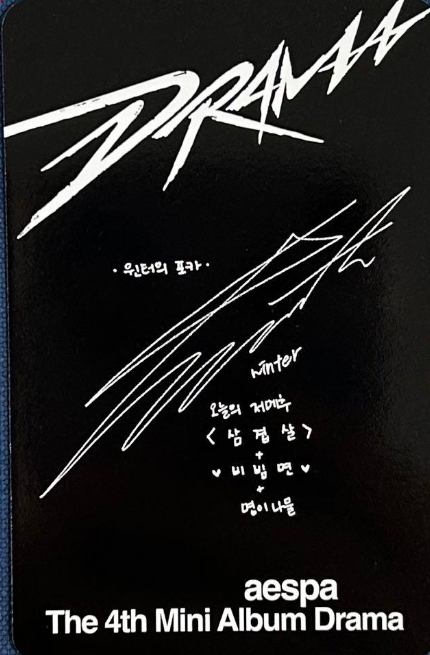 DRAMA
·윈터의 포카·
winter
오늘의 저메추
<삼겹살>
+
♥비빔면♥
+
명이나물
aespa
The 4th Mini Album Drama